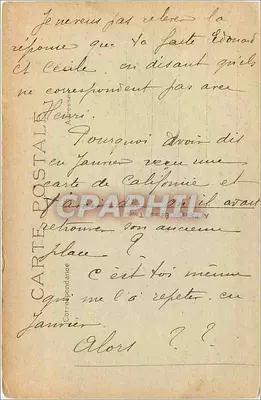 Je ne veux pas relever la
réponse que t'a faite Edouard
et Cécile en disant qu'ils
ne correspondent pas avec
Henri.
Pourquoi avoir dit
en Janvier reçu une
carte de Californie et
qu'il avait
retrouver son ancienne
place ?
C'est toi même
qui me l'a repeter en
Janvier.
Alors ? ?
CARTE POSTALE
Correspondance
CPAPHIL